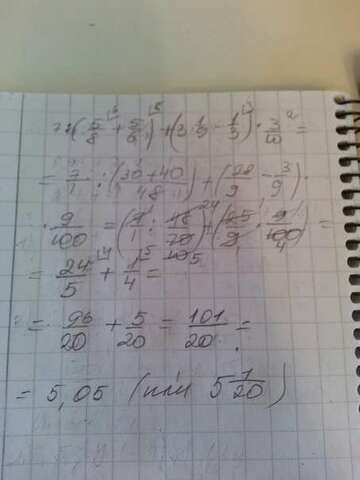 7:(5/8+5/6)+(3 1/9-1/3)·3/5²=
=7/1:(30+40/48)+(28/9-3/9)·
·9/100=(7/1:48/70)+(25/9·9/100)=
=24/5+1/4=
=96/20+5/20=101/20=
=5,05 (или 5 1/20)